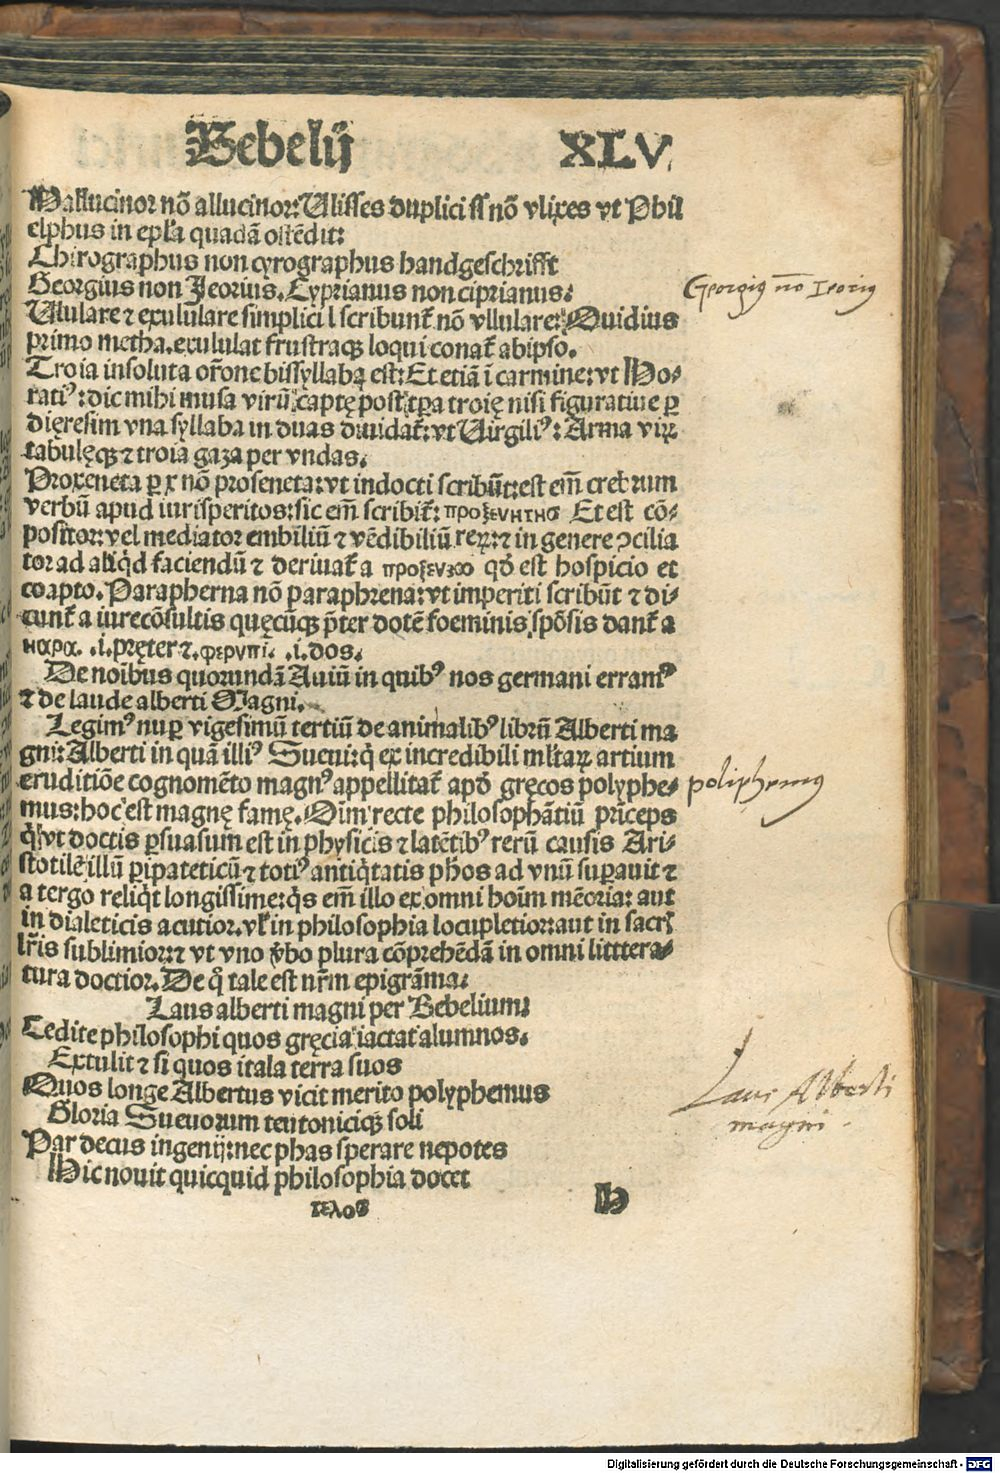 Bebelij XLV
Hallucinor nõ allucinor: Ulisses duplici ſſ nõ vlixes vt Phil
elphus in epl'a quadã oſtẽdit:
Chirographus non cyrographus handgeſchrifft
Georgius non Jeorius. Cyprianus non ciprianus:
Georgiꝰ nõ Ieoriꝰ
Ululare ⁊ exululare ſimplici l ſcribunt᷑ nõ vllulare: Ouidius
primo metha. exululat fruſtraqꝫ loqui conat᷑ ab ipſo.
Troia in ſoluta or̃one biſſyllaba eſt: Et etiã ĩ carmine: vt Ho⸗
ratiꝰ: dic mihi muſa virũ captę poſt tꝑa troię niſi figuratiue ꝑ
dięreſim vna ſyllaba in duas diuidat᷑: vt Uirgiliꝰ: Arma virꝝ
tabulęqꝫ ⁊ troia gaza per vndas.
Proxeneta ꝑ x nõ proſeneta: vt indocti ſcribũt: eſt em̃ crebrum
verbũ apud iurisperitos: ſic em̃ ſcribit᷑: προξενητησ Et eſt cõ⸗
poſitor: vel mediator embiliũ ⁊ vẽdibiliũ reꝝ: ⁊ in genere ↄcilia
tor ad aliq̇d faciendũ ⁊ deriuat᷑ a προξενεω qd̃ eſt hoſpicio et
coapto. Parapherna nõ paraphrena: vt imperiti ſcribũt ⁊ di⸗
cunt᷑ a iurecõſultis quęcũqꝫ p̃ter dotẽ foeminis ſpõſis dant᷑ a
παρα. .i. pręter ⁊. φερνπι. .i. dos.
De noĩbus quorundã Auiũ in quibꝰ nos germani erramꝰ
⁊ de laude alberti Magni.
Legimꝰ nuꝑ vigeſimũ tertiũ de animalibꝰ librũ Alberti ma
gni: Alberti in quã illiꝰ Sueui: q̇ ex incredibili ml'taꝝ artium
eruditiõe cognomẽto magnꝰ appellitat᷑ apd̃ gręcos polyphe⸗
poliphemꝰ
mus: hoc eſt magnę famę. Oĩm recte philoſophãtiũ prĩceps
q̇ vt doctis ꝑſuaſum eſt in phyſicis ⁊ latẽtibꝰ rerũ cauſis Ari⸗
ſtotilẽ illũ ꝑipateticũ ⁊ totiꝰ antiq̇tatis ph̃os ad vnũ ſuꝑauit ⁊
a tergo reliq̇t longiſſime: q̇s em̃ illo ex omni hoĩm mẽoria: aut
in dialeticis acutior. vl' in philoſophia locupletior: aut in ſacrꝭ
lr̃is ſublimior: ⁊ vt vno v̓bo plura cõprehẽdã in omni litttera⸗
tura doctior. De q̊ tale eſt nr̃m epigrãma:
Laus alberti magni per Bebelium:
Cedite philoſophi quos gręcia iactat alumnos.
Extulit ⁊ ſi quos itala terra ſuos
Quos longe Albertus vicit merito polyphemus
Laus Alberti
magni .
Gloria Sueuorum teutoniciqꝫ ſoli
Par decus ingenij: nec phas ſperare nepotes
Hic nouit quicquid philoſophia docet
τελοσ h
Digitalisierung gefördert durch die Deutsche Forschungsgemeinschaft - DFG